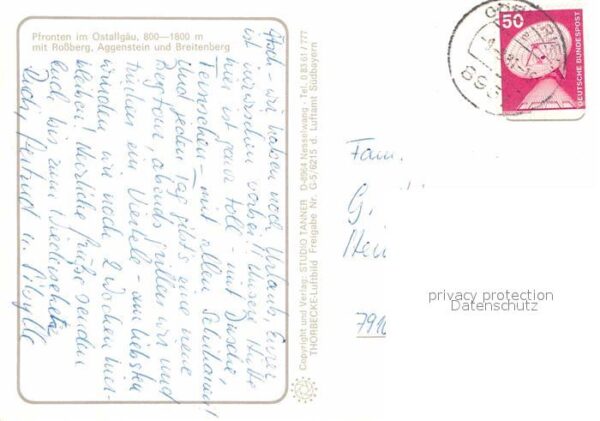 Pfronten im Ostallgäu, 800—1800 m
mit Roßberg, Aggenstein und Breitenberg
Ach - wir haben noch Urlaub, Eurer
ist inzwischen vorbei! Unsere Hütte
hier ist ganz toll - mit Dusche,
Fernsehen - mit allen Schikanen!
Und jeden Tag gibt's eine neue
Bergtour, abends grillen wir und
trinken ein Viertele - am liebsten
würden wir noch 2 Wochen hier-
bleiben! Herzliche Grüße senden
Euch bis zum Wiedersehen
Rudi, Gertrud u. Sibylle
Copyright und Verlag: STUDIO TANNER D-8964 Nesselwang · Tel. 0 83 61 / 777
THORBECKE-Luftbild Freigabe Nr. G-5/6215 d. Luftamt Südbayern
50
DEUTSCHE BUNDESPOST
Fam.
G.
791
privacy protection
Datenschutz